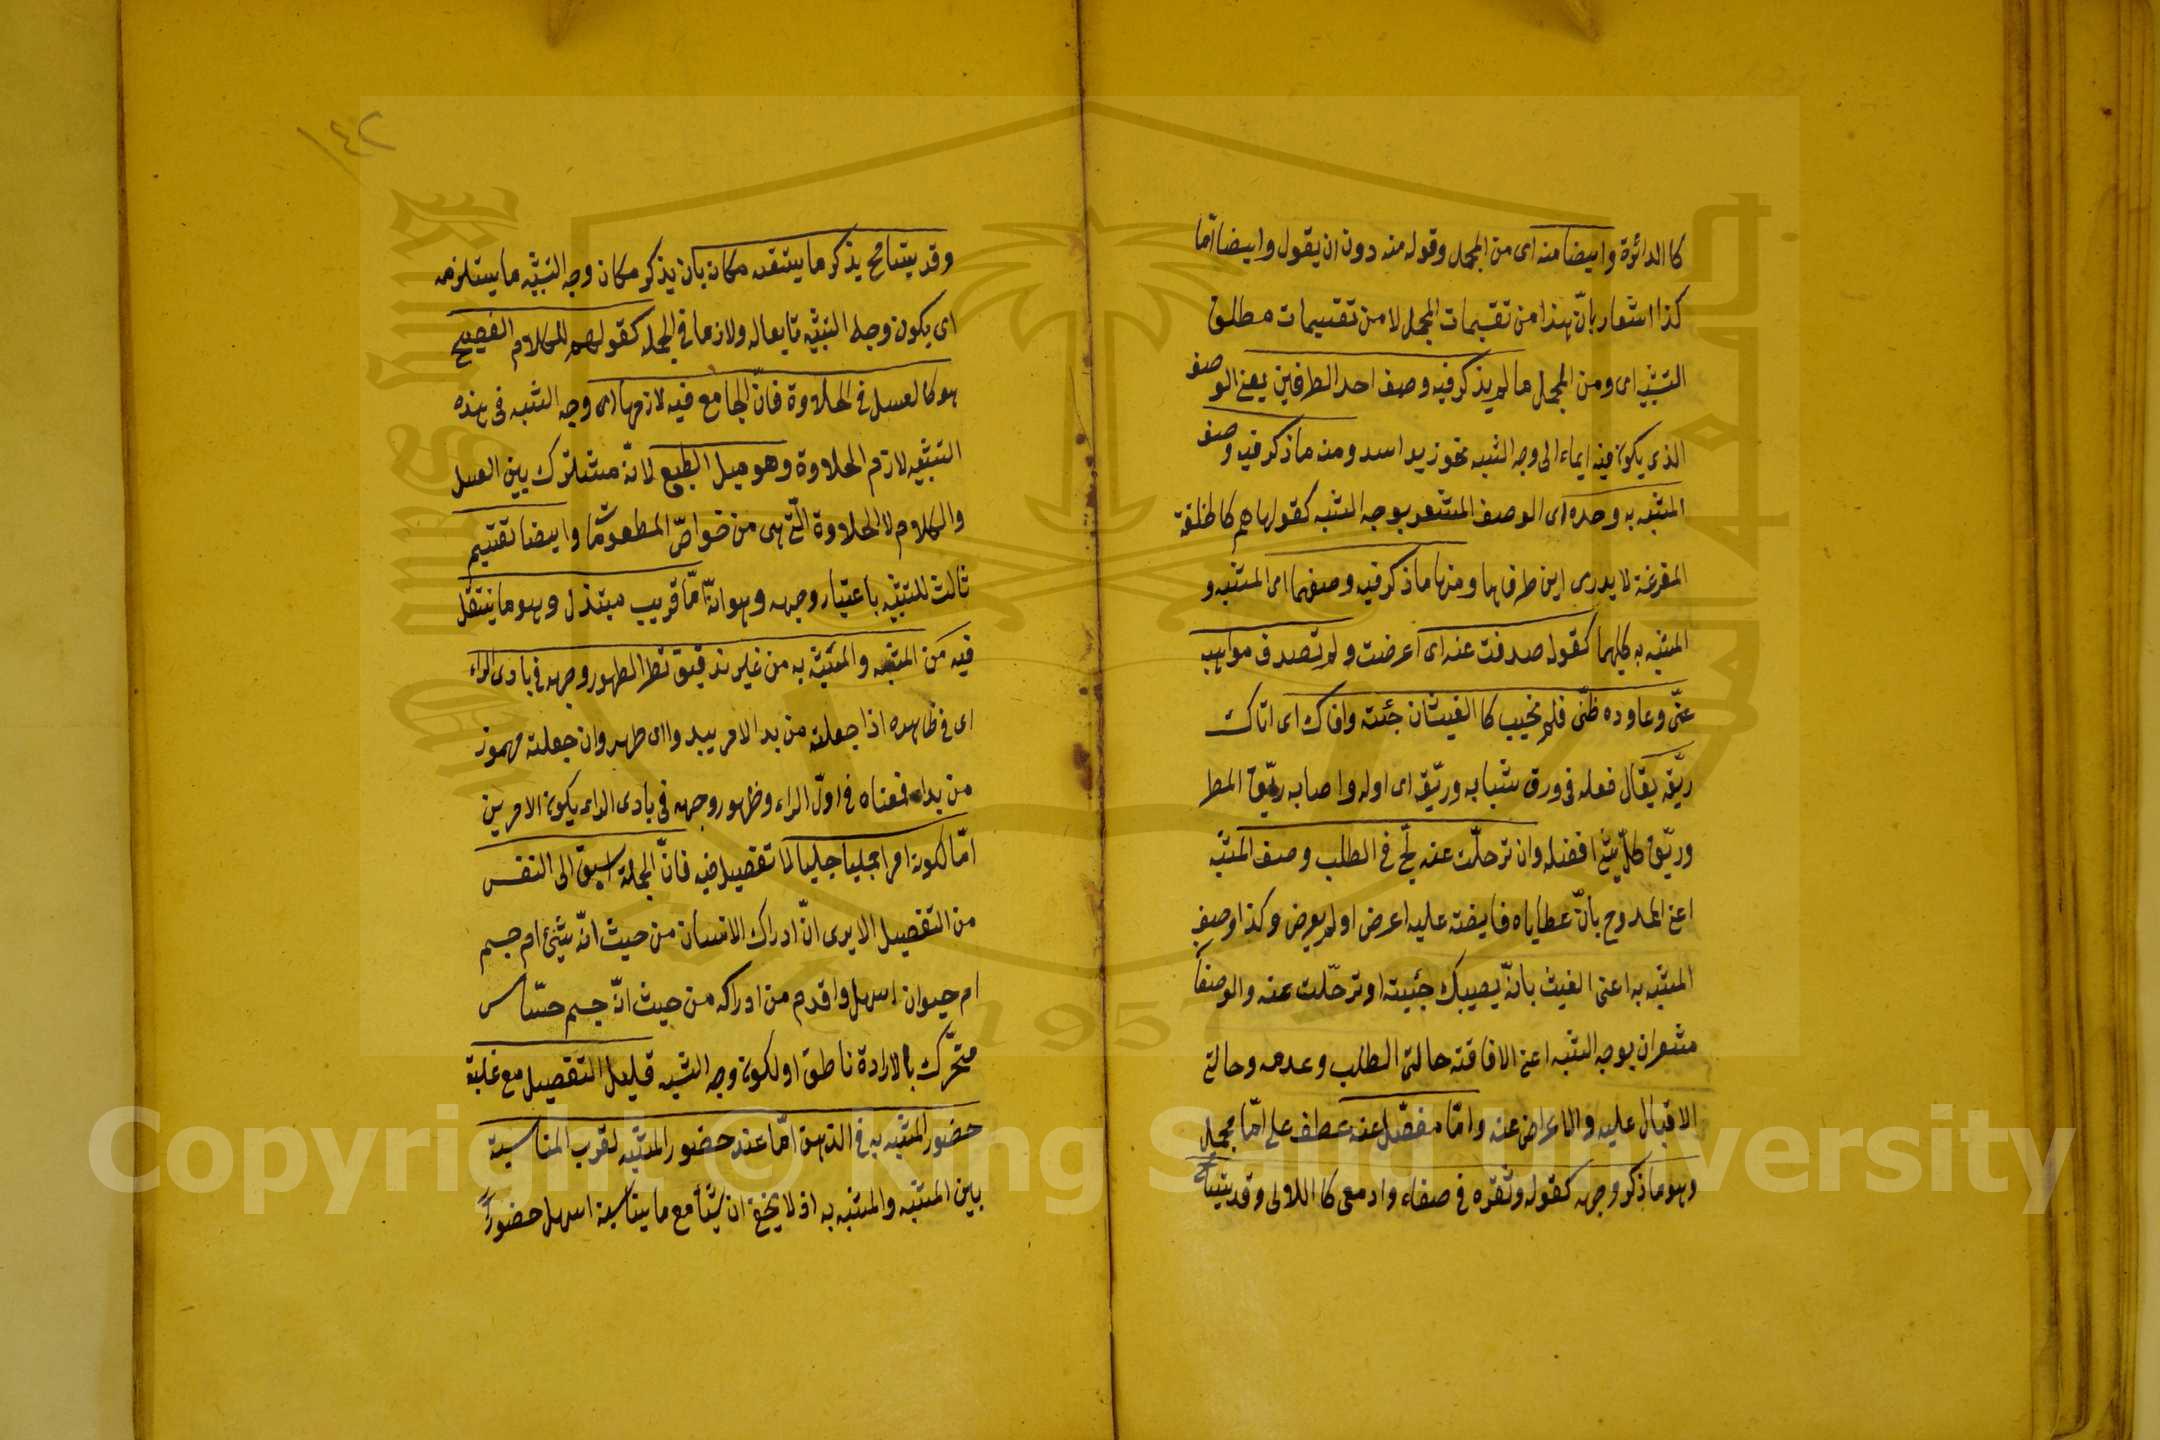 كالدائرة وايضا منه اى من المجمل وقوله منه دون ان يقول وايضا امّا
كذا اشعار بانّ هذا من تقسيمات المجمل لا من تقسيمات مطلق
التشبيه اى ومن المجمل ما لم يذكر فيه وصف احد الطرفين يعنى الوصف
الذى يكون فيه ايماء الى وجه الشبه نحو زيد اسد ومنه ما ذكر فيه وصف
المشبه به وحده اى الوصف المشعر بوجه الشبه كقولها هم كالحلقة
المفرغة لا يدرى اين طرفاها ومنها ما ذكر فيه وصفهما اى المشبه و
المشبه به كليهما كقوله صدفت عنه اى اعرضت ولم تصدف مواهبه
عنّى وعاوده ظنّى فلم يخيب كالغيث ان جئته وافاك اى اتاك
ريّقه يقال فعله فى ورق شبابه وريّقه اى اوله واصابه ريّق المطر
وريّق كلّ شئ افضله وان ترحلّت عنه لجّ فى الطلب وصف المشبه
اعنى الممدوح بانّ عطاياه فايضة عليه اعرض او لم يعرض وكذا وصف
المشبه به اعنى الغيث بانّه يصيبك جئيته او ترحّلت عنه والوصفان
مشعران بوجه الشبه اعنى الافاقته حالتى الطلب وعدمه وحالتى
الاقبال عليه والاعراض عنه وامّا مفصّل عنه عطف على امّا مجمل
وهو ما ذكر وجهه كقوله وثغره فى صفاء وادمعى كاللالى وقد يتسامح
١٤٢
وقد يتسامح يذكر ما يستتبعه مكانه بان يذكر مكان وجه التشبيه ما يستلزمه
اى يكون وجه التشبيه تابعا له ولازما فى الجملة كقولهم للكلام الفصيح
هو كالعسل فى الحلاوة فانّ الجامع فيه لازمها اى وجه الشبه فى هذه
التشبيه لازم الحلاوة وهو ميل الطبع لانّه مشترك بين العسل
والكلام لا الحلاوة الّتى هى من خواصّ المطعومات وايضا تقسيم
ثالث للتشبيه باعتبار وجهه وهو انّه امّا قريب مبتذل وهو ما ينتقل
فيه من المشبه والمشبه به من غير تدقيق نظر لظهور وجهه فى بادى الراء
اى فى ظاهره اذا جعلته من بدا الامر يبدو اى ظهر وان جعلته مهموز
من بداء فمعناه فى اوّل الراء وظهور وجهه فى بادى الراء يكون الامرين
امّا لكونه امرا جمليا جليا لما تفصيل فيه فانّ الجملة اسبق الى النفس
من التفصيل الا يرى انّ ادراك الانسان من حيث انّه شئ ام جسم
ام حيوان اسهل واقدم من ادراكه من حيث انّه جسم حسّاس
متحرّك بالارادة ناطق او لكون وجه الشبه قليل التفصيل مع غلبة
حضور المشبه به فى الذهن امّا عند حضور المشبه لقرب المناسبة
بين المشبه والمشبه به اذ لا يخفى ان شيئا مع ما يناسبه اسهل حضورا
Copyright © King Saud University
1957